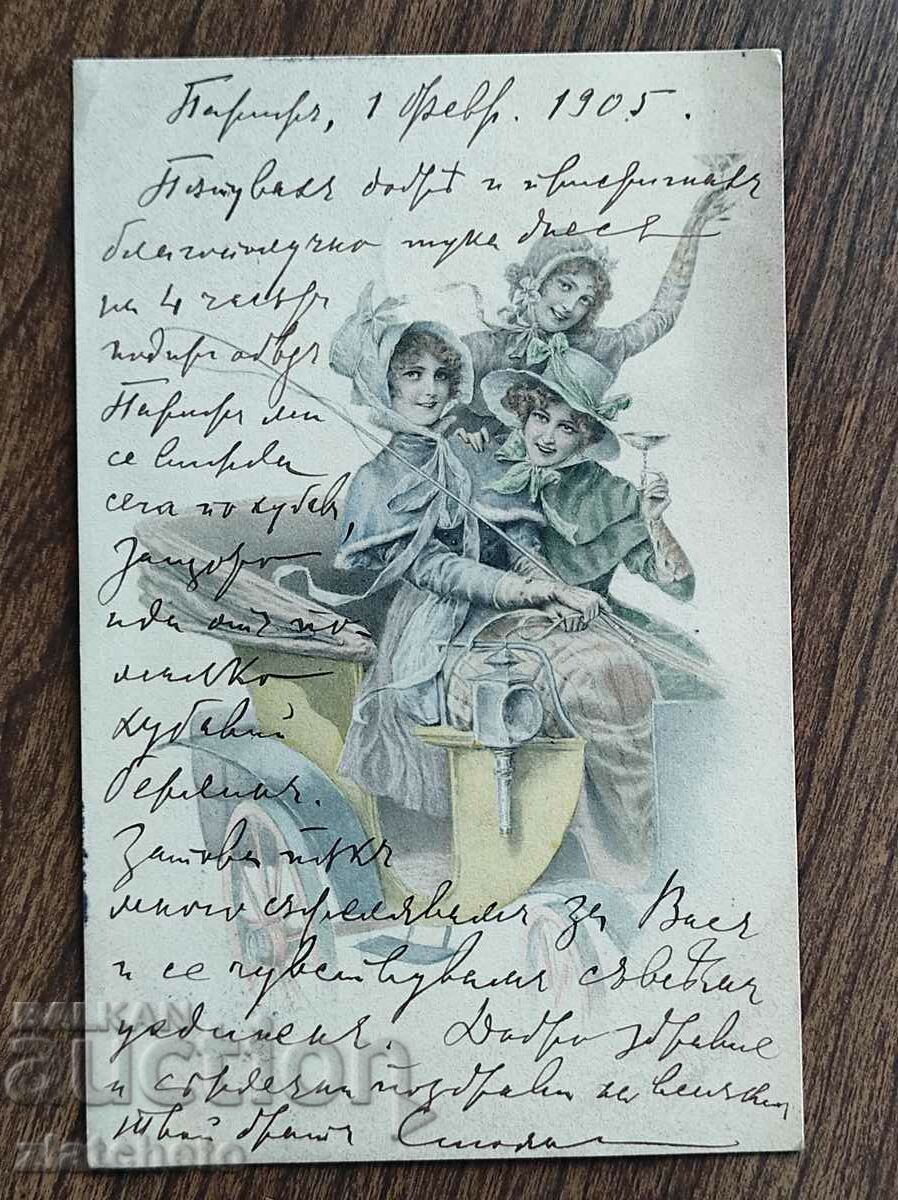 Парижъ, 1 Февр. 1905.
Пѫтувахъ добрѣ и пристигнахъ
благополучно тука днесъ
на 4 часътъ
подиръ обѣдъ
Парижъ ми
се
сега по хубавъ,
Защото
ида отъ по-
малко
хубавий
Берлинъ.
Затова пъкъ
много съжалявамъ за Васъ
и се чувствувамъ съвсѣмъ
уединенъ. Добро здравие
и сърдечни поздрави на всички
твой братъ Стоян
BALKAN
auction
zlatchoto